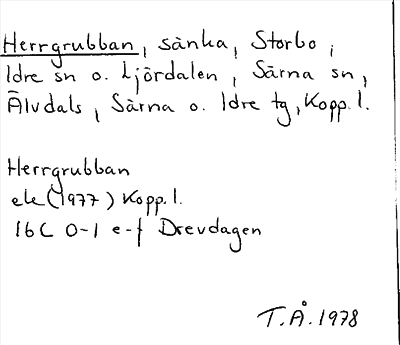 Herrgrubban, sänka, Storbo,
Idre sn o. Ljördalen, Särna sn,
Älvdals, Särna o. Idre tg, Kopp. l.
Herrgrubban
ek (1977) Kopp. l.
16C 0-1 e-f Drevdagen
T.Å. 1978